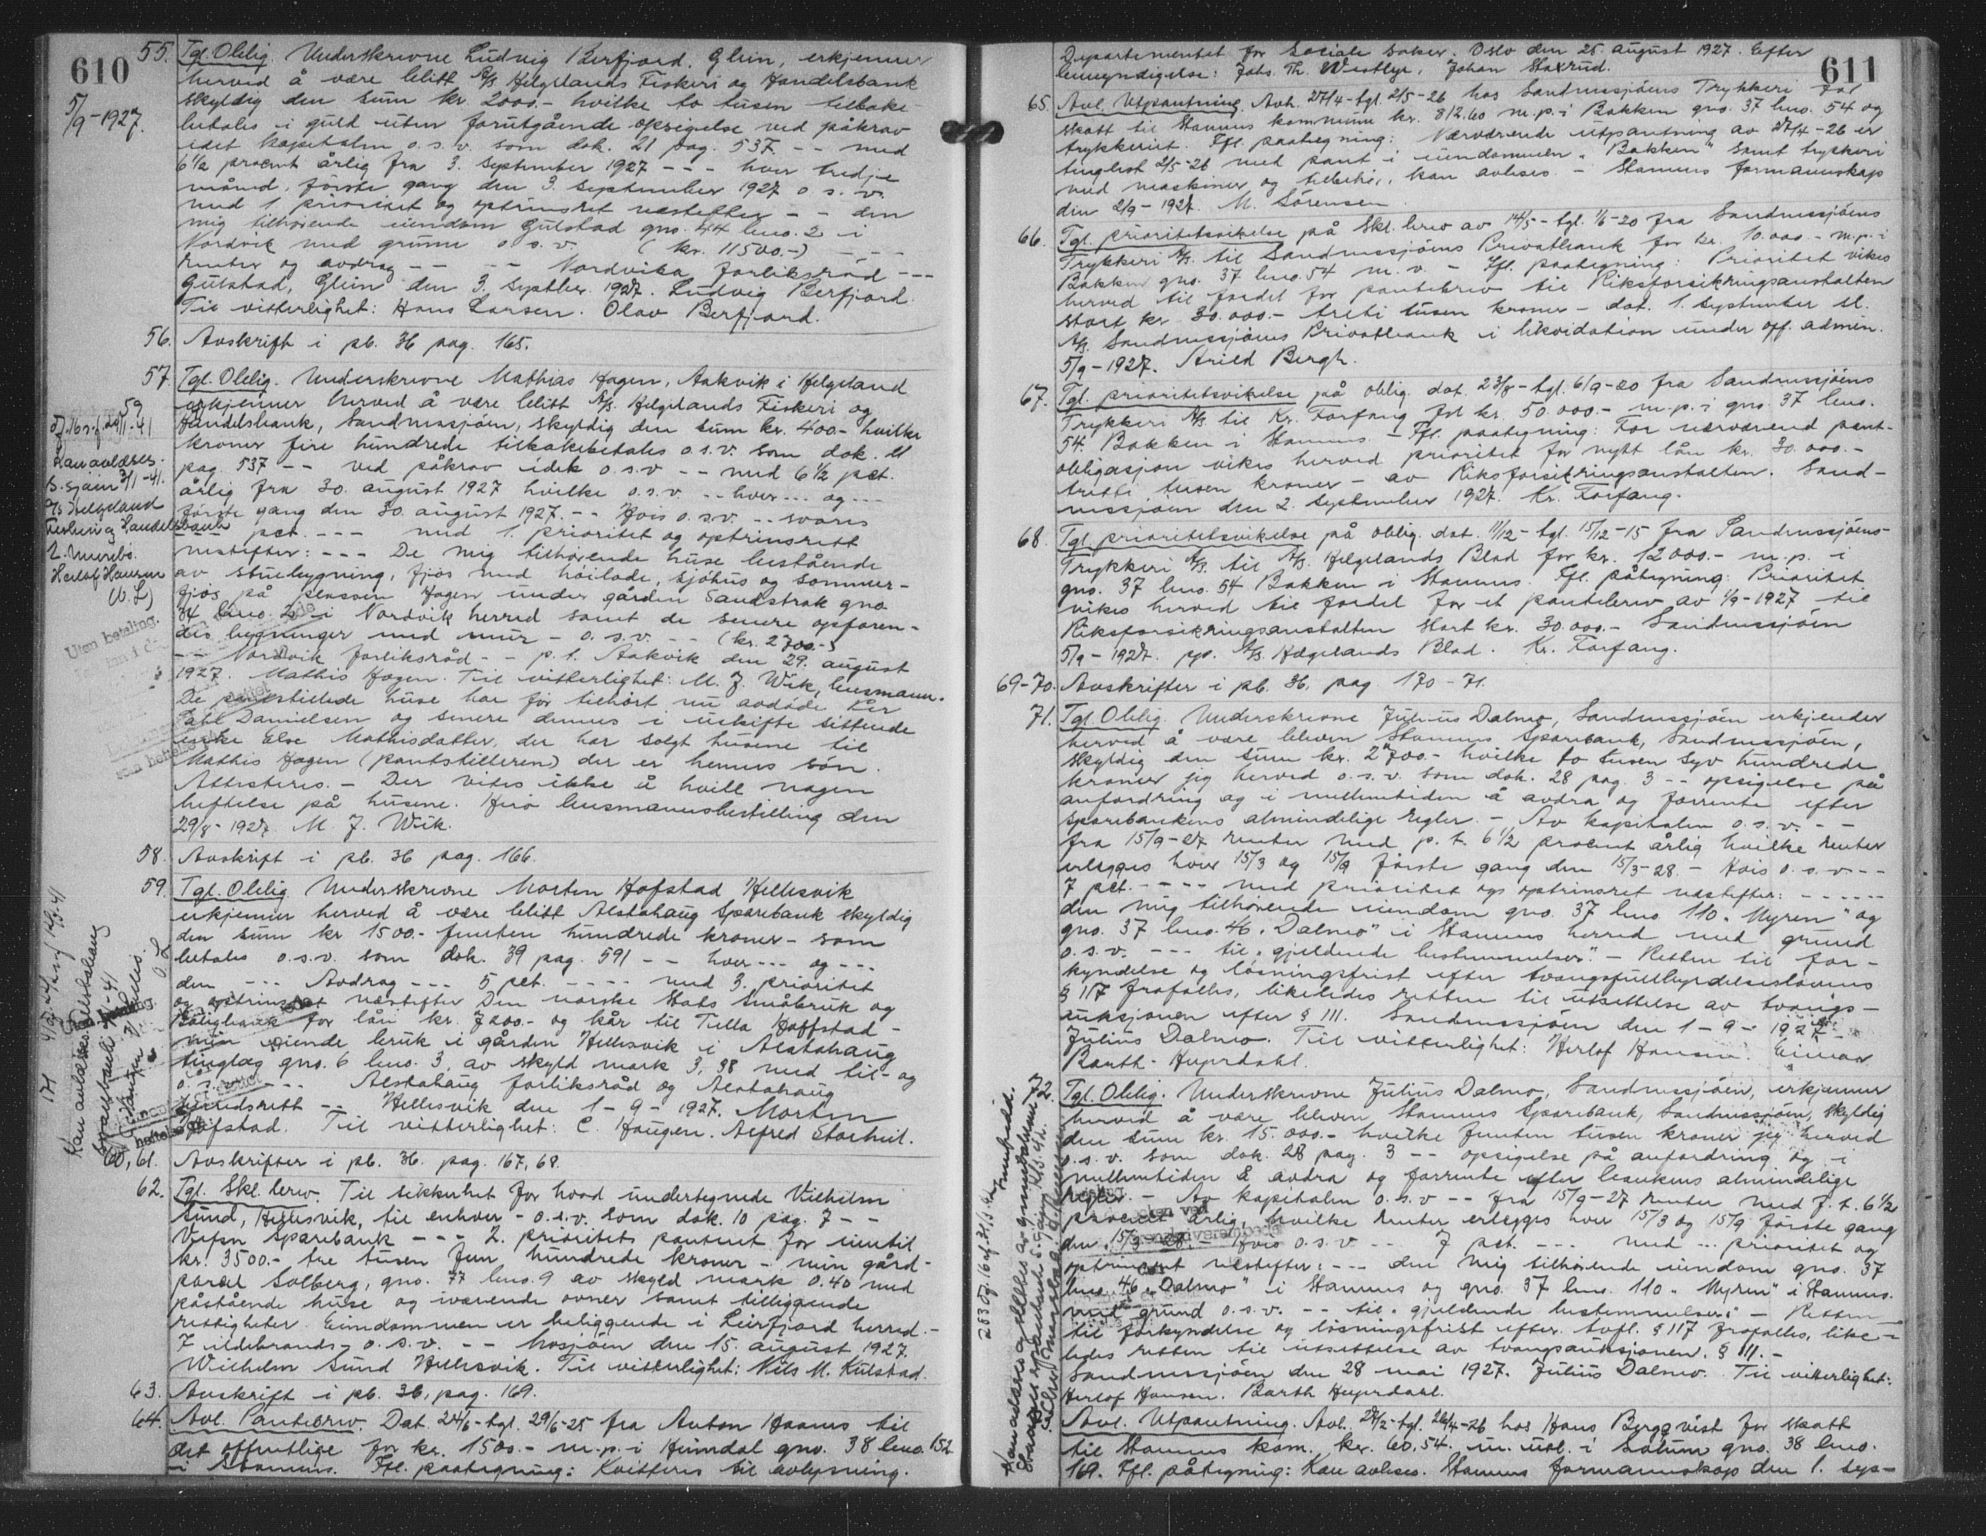 610
5/9-1927.
55. Tgl. Oblig. Underskrevne Ludvig Berfjord, Glein, erkjenner
herved å være blitt A/S Helgelands Fiskeri og Handelsbank
skyldig den sum kr. 2000.- hvilke to tusen tilbake-
betales i guld uten forutgående opsigelse ved påkrav
idet kapitalen o.s.v. som dok. 21 pag. 537. -- med
6½ procent årlig fra 3. september 1927 --- hver tredje
måned, første gang den 3. september 1927 o.s.v.
med 1 prioritet og optrinsret næstefter -- den
mig tilhørende eiendom Gulstad gno. 44 bno. 2 i
Nordvik med grunn o.s.v. (kr. 11500.-) ---
renter og avdrag --- Nordvika forliksråd ---
Gulstad, Glein den 3. septber. 1927. Ludvig Berfjord.
Til vitterlighet: Hans Larsen. Olav Berfjord.
56. Avskrift i pb. 36 pag. 165.
57. Tgl. Oblig. Underskrevne Mathias Hagen, Aakvik i Helgeland
erkjenner herved å være blitt A/S Helgelands Fiskeri og
Handelsbank, Sandnessjøen, skyldig den sum kr. 400.- hvilke
kroner fire hundrede tilbakebetales o.s.v. som dok. 21
pag. 537 -- ved påkrav idet o.s.v. -- med 6½ pct.
årlig fra 30. august 1927 hvilke o.s.v. -- hver --- og ---
første gang den 30. august 1927. -- Hvis o.s.v. -- svares
--- pct. --- med 1. prioritet og optrinsrett
nestefter: --- De mig tilhørende huse bestående
av stuebygning, fjøs med høilade, sjøhus og sommer-
fjøs på plassen Hagen under gården Sandstrak gno
34 bno. 2 i Nordvik herred samt de senere opføren-
des bygninger med mur - o.s.v. -- (kr. 2700.-)
-- Nordvik forliksråd -- p.t. Aakvik den 29. august
1927. Mathis Hagen. Til vitterlighet: M. J. Wik, lensmann.
De pantestillede huse har før tilhørt nu avdøde Per
Pahl Danielsen og senere dennes i uskifte sittende
enke Else Mathisdatter, der har solgt husene til
Mathis Hagen (pantstilleren) der er hennes søn.
Attesteres. - Der vites ikke å hvile nogen
heftelse på husene. Herø lensmannsbestilling den
29/8-1927. M. J. Wik.
Kan avlæses
S.sjøen 3/1-41.
A/S Helgeland
Fiskeri og Handelsbank
Herlof Hansen
(L.S.)
Uten betaling.
58. Avskrift i pb. 36 pag. 166.
59. Tgl. Oblig. Underskrevne Morten Hofstad Hellesvik
erkjenner herved å være blitt Alstahaug Sparebank skyldig
den sum kr 1500.- femten hundrede kroner - som
betales o.s.v. som dok. 39 pag. 591 -- hver --- og ---
den --- Avdrag --- 5 pct. ---- med 3. prioritet
og optrinsret næstefter Den norske Stats Småbruk og
Boligbank for lån kr. 7000.- og kår til Tulla Hoffstad -
min eiende bruk i gården Hellesvik i Alstahaug
tinglag gno. 6 bno. 3, av skyld mark 3,38 med til- og
o.s.v. --- Alstahaug forliksråd og Alstahaug
herredsrett -- Hellesvik den 1-9-1927. Morten
Hofstad. Til vitterlighet: C. Haugen. Alfred Storhil.
60, 61. Avskrifter i pb. 36. pag. 167, 68.
62. Tgl. Skl. brev. Til sikkerhet for hvad undertegnede Vilhelm
Sund, Hellesvik, til enhver - o.s.v. som dok. 10 pag. 7 --
Vefsn Sparebank --- 2. prioritets panteret for inntil
kr. 3500.- tre tusen fem hundrede kroner - min gård-
parsel Solberg, gno. 77 bno. 9 av skyld mark 0.40 med
påstående huse og iværende ovner samt tilliggende
rettigheter. Eiendommen er beliggende i Leirfjord herred.-
7 ildebrands- o.s.v. -- Mosjøen den 15. august 1927.
Wilhelm Sund Hellesvik. Til vitterlighet: Nils M. Kulstad.
63. Avskrift i pb. 36, pag. 169.
64. Avl. Pantebrev. Dat 24/6-tgl. 29/6-25 fra Anton Haanes til
det offentlige for kr. 1500.- m.p. i Heimdal gno. 38 bno. 152
i Stamnes. Ffl. paategning: Kvitteres til avlysning.
611
Departementet for Sociale saker. Oslo den 25 august 1927. Efter
bemyndigelse: Johs. Th. Westbye. Johan Staxrud.
65. Avl. Utpantning. Avh. 27/4-tgl. 2/5-26 hos Sandnessjøens Trykkeri for
skatt til Stamnes kommune kr. 812.60 m.p. i Bakken gno. 37 bno. 54 og
trykkeriet. Ffl. paategning: Nærværende utpantning av 27/4-26 er
tinglest 2/5-26 med pant i eiendommen „Bakken" samt trykkeri
med maskiner og tilbehør, kan avleses. - Stamnes formannskap
den 2/9-1927. M. Sørensen
66. Tgl. prioritetsvikelse på Skl. brev av 14/5-tgl. 1/6-20 fra Sandnessjøens
Trykkeri A/S. til Sandnessjøens Privatbank for kr. 10.000.- m.p. i
Bakken gno. 37 bno. 54 m.v. - Ffl. paategning: Prioritet vikes
herved til fordel for pantebrev til Riksforsikringsanstalten
stort kr. 30.000.- tretti tusen kroner - dat. 1. september d.
A/S Sandnessjøens Privatbank i likvidation under off. admin.
5/9-1927. Arild Bergh.
67. Tgl. prioritetsvikelse på oblig. dat. 23/8-tgl. 6/9-20 fra Sandnessjøens
Trykkeri A/S til Kr. Forfang for kr. 50.000.- m.p. i gno. 37 bno.
54. Bakken i Stamnes. - Ffl. paategning: For nærværend pant-
obligasjon vikes herved prioritet for nytt lån kr. 30.000.-
tretti tusen kroner - av Riksforsikringsanstalten. Sand-
nessjøen den 2. september 1927. Kr. Forfang.
68. Tgl. prioritetsvikelse på oblig. dat. 11/12-tgl. 15/12-15 fra Sandnessjøens
Trykkeri A/S til A/S Helgelands Blad for kr. 12000.- m.p. i
gno. 37 bno. 54 Bakken i Stamnes. Ffl. påtegning: Prioritet
vikes herved til fordel for et pantebrev av 1/9-1927 til
Riksforsikringsanstalten stort kr. 30.000.- Sandnessjøen
5/9-1927. pr. A/S Helgelands Blad. Kr. Forfang.
69-70. Avskrifter i pb. 36, pag 170-71.
71. Tgl. Oblig. Underskrevne Julius Dalmo, Sandnessjøen erkjender
herved å være bleven Stamnes Sparebank, Sandnessjøen,
skyldig den sum kr. 2700.- hvilke to tusen syv hundrede
kroner jeg herved o.s.v. som dok. 28 pag. 3 -- opsigelse på
anfordring og i mellemtiden å avdra og forrente efter
sparebankens almindelige regler. - Av kapitalen o.s.v. --
fra 15/9-27 renter med p.t. 6½ procent årlig hvilke renter
erlegges hver 15/3 og 15/9 første gang den 15/3-28. - Hvis o.s.v. --
7 pct. ---- med prioritet og optrinsret næstefter: -----
den mig tilhørende eiendom gno. 37 bno. 110 „Myren" og
gno. 37 bno. 46 „Dalmo" i Stamnes herred med grund
o.s.v. --- til „gjeldende bestemmelser". - Retten til for-
kyndelse og løsningsfrist efter tvangsfullbyrdelseslovens
§ 117 frafalles, likeledes retten til utsettelse av tvangs-
auksjonen efter § 111. Sandnessjøen den 1-9-1927.
Julius Dalmo. Til vitterlighet: Herlof Hansen. Einar
Barth-Heyerdahl.
72. Tgl. Oblig. Underskrevne Julius Dalmo, Sandnessjøen, erkjenner
herved å være bleven Stamnes Sparebank, Sandnessjøen, skyldig
den sum kr. 15.000.- hvilke femten tusen kroner jeg herved
o.s.v. som dok. 28 pag. 3 -- opsigelse på anfordring og i
mellemtiden å avdra og forrente efter bankens almindelige
regler. - Av kapitalen o.s.v. -- fra 15/9-27 renter med p.t. 6½
procent årlig, hvilke renter erlegges hver 15/3 og 15/9 første gang
den 15/3-28. - Hvis o.s.v. -- 7 pct. --- med -- prioritet og
optrinsret næstefter: --- den mig tilhørende eiendom gno. 37
bno. 46 „Dalmo" i Stamnes og gno. 37 bno. 110 „Myren" i Stamnes
med grund o.s.v. -- til „gjeldende bestemmelser". - Retten
til forkyndelse og løsningsfrist efter tvfl. § 117 frafalles, like-
ledes retten til utsettelse av tvangsauksjonen. § 111. -
Sandnessjøen den 28 mai 1927. Julius Dalmo. Til vitterlighet:
Herlof Hansen. Barth Heyerdahl.
Avl. Utpantning. Avh. 27/2-tgl. 26/4-26 hos Hans Bergqvist for skatt
til Stamnes kom. kr. 60,54. m. utl. i Solum gno. 38 bno.
169. Ffl. påtegning: Kan avleses. Stamnes formannskap den 1. sep-